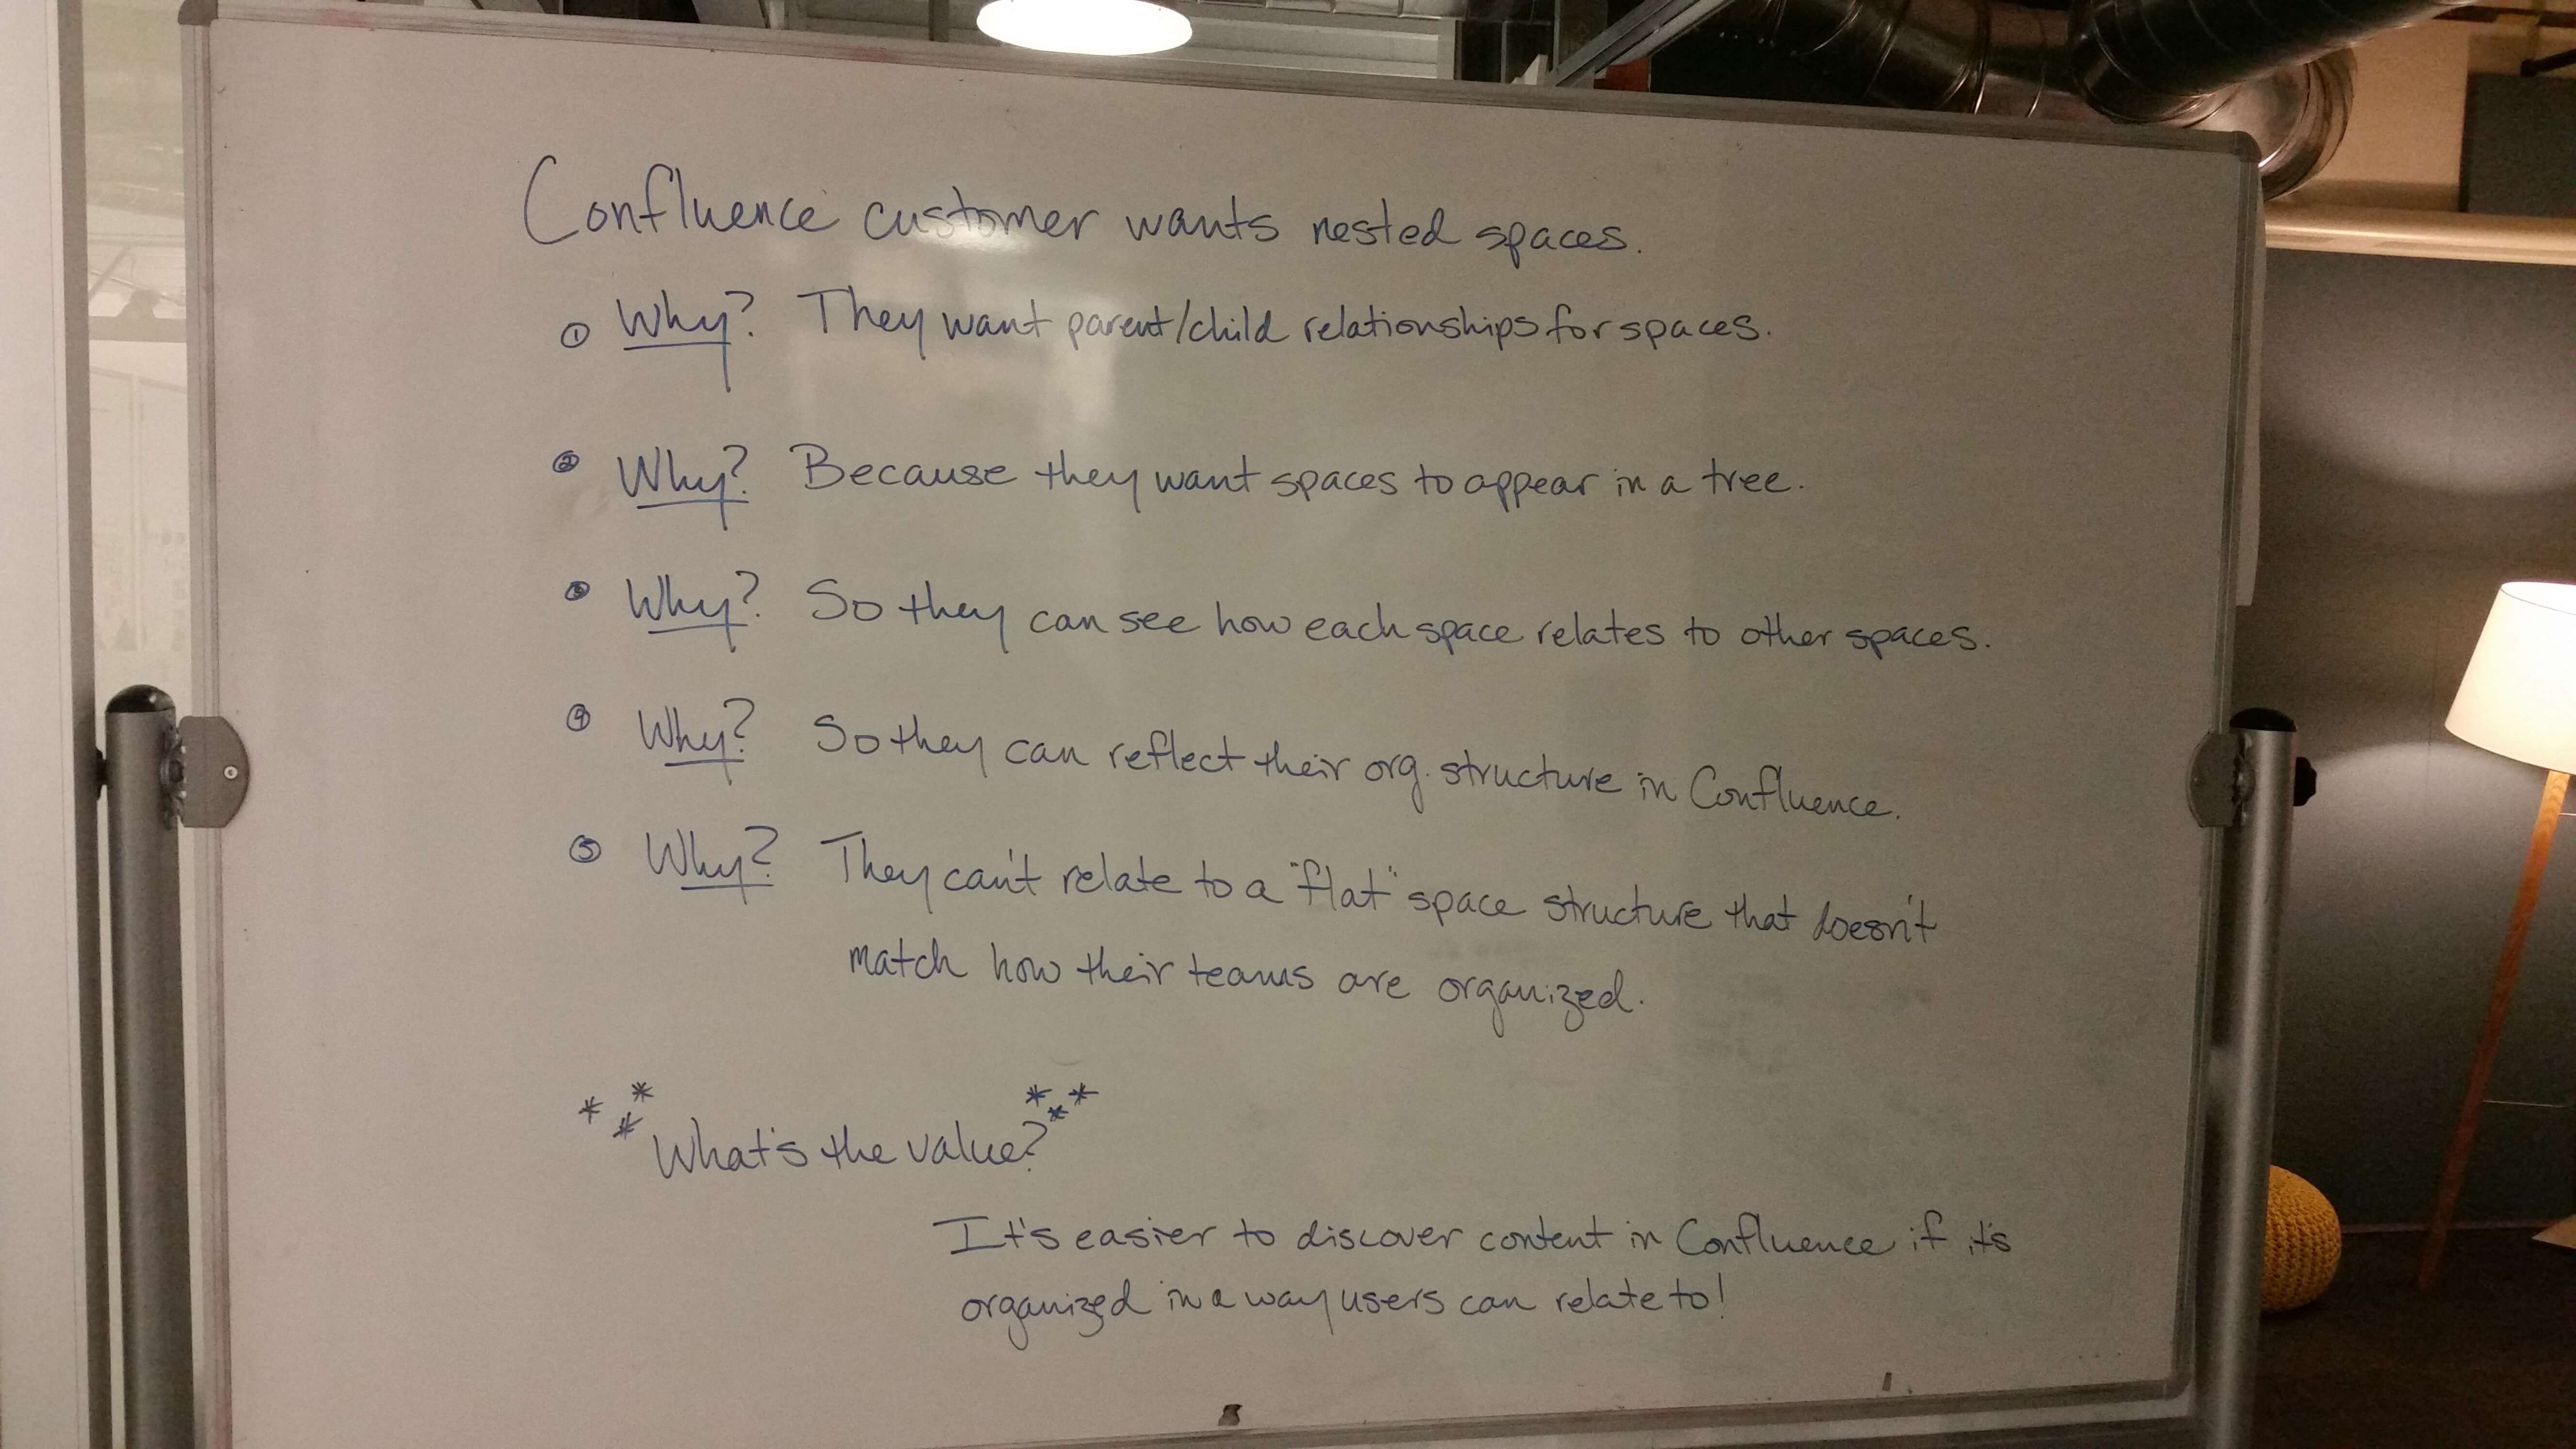 Confluence customer wants nested spaces.
① Why? They want parent/child relationships for spaces.
② Why? Because they want spaces to appear in a tree.
③ Why? So they can see how each space relates to other spaces.
④ Why? So they can reflect their org. structure in Confluence.
⑤ Why? They can't relate to a "flat" space structure that doesn't
match how their teams are organized.
* * * What's the value? * * *
It's easier to discover content in Confluence if it's
organized in a way users can relate to!